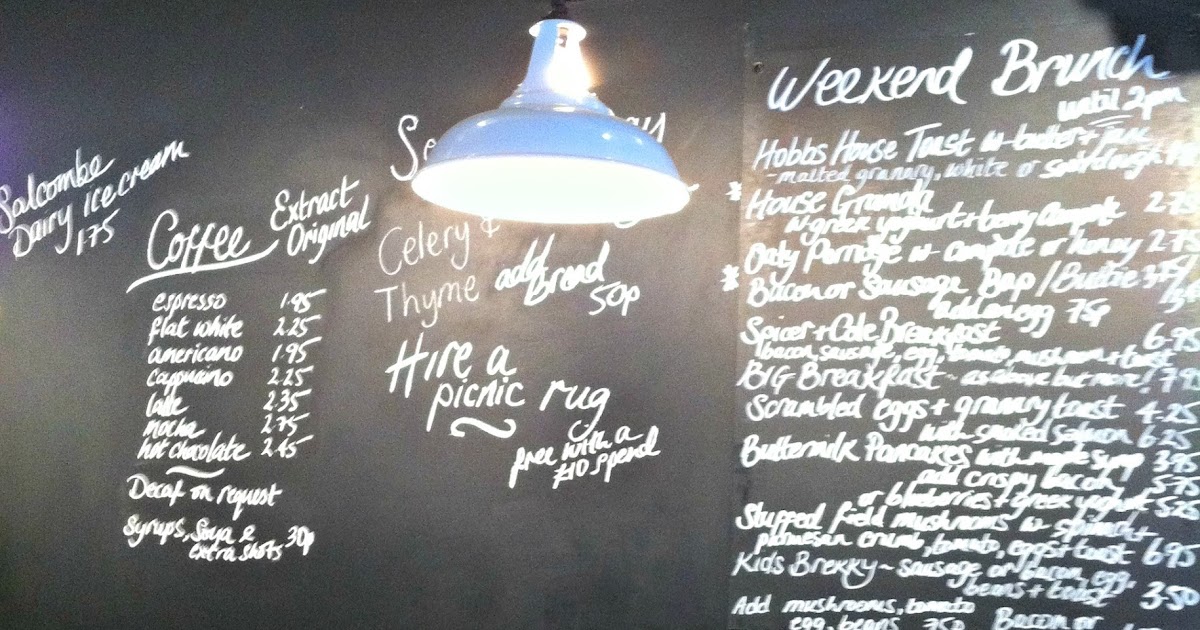 Salcombe
Dairy ice cream
1.75
Coffee
Extract
Original
espresso 1.95
flat white 2.25
americano 1.95
cappucino 2.25
latte 2.35
mocha 2.75
hot chocolate 2.45
Decaf on request
Syrups, Soya &
extra shots 30p
Celery &
Thyme
add
bread
50p
Hire a
picnic rug
free with a
£10 spend
Weekend Brunch
until 2pm
Hobbs House Toast w butter + jam
- malted granary, white or sourdough
* House Granola 2.75
w greek yoghurt + berry compote
Oaty Porridge w compote or honey 2.75
* Bacon or Sausage Bap / Buttie
add an egg 75p
Spicer + Cole Breakfast 6.95
bacon, sausage, egg, tomato, mushroom + toast
BIG Breakfast - as above but more!
Scrambled eggs + granary toast 4.25
with smoked salmon 6.25
Buttermilk Pancakes with maple syrup 3.95
add crispy bacon 5.75
or blueberries + greek yoghurt 5.25
Stuffed field mushrooms w spinach +
parmesan crumb, tomato, eggs + toast 6.95
Kids Brekky ~ sausage or bacon, egg,
beans + toast 3.50
Add mushrooms, tomato
egg, beans 75p
Bacon or